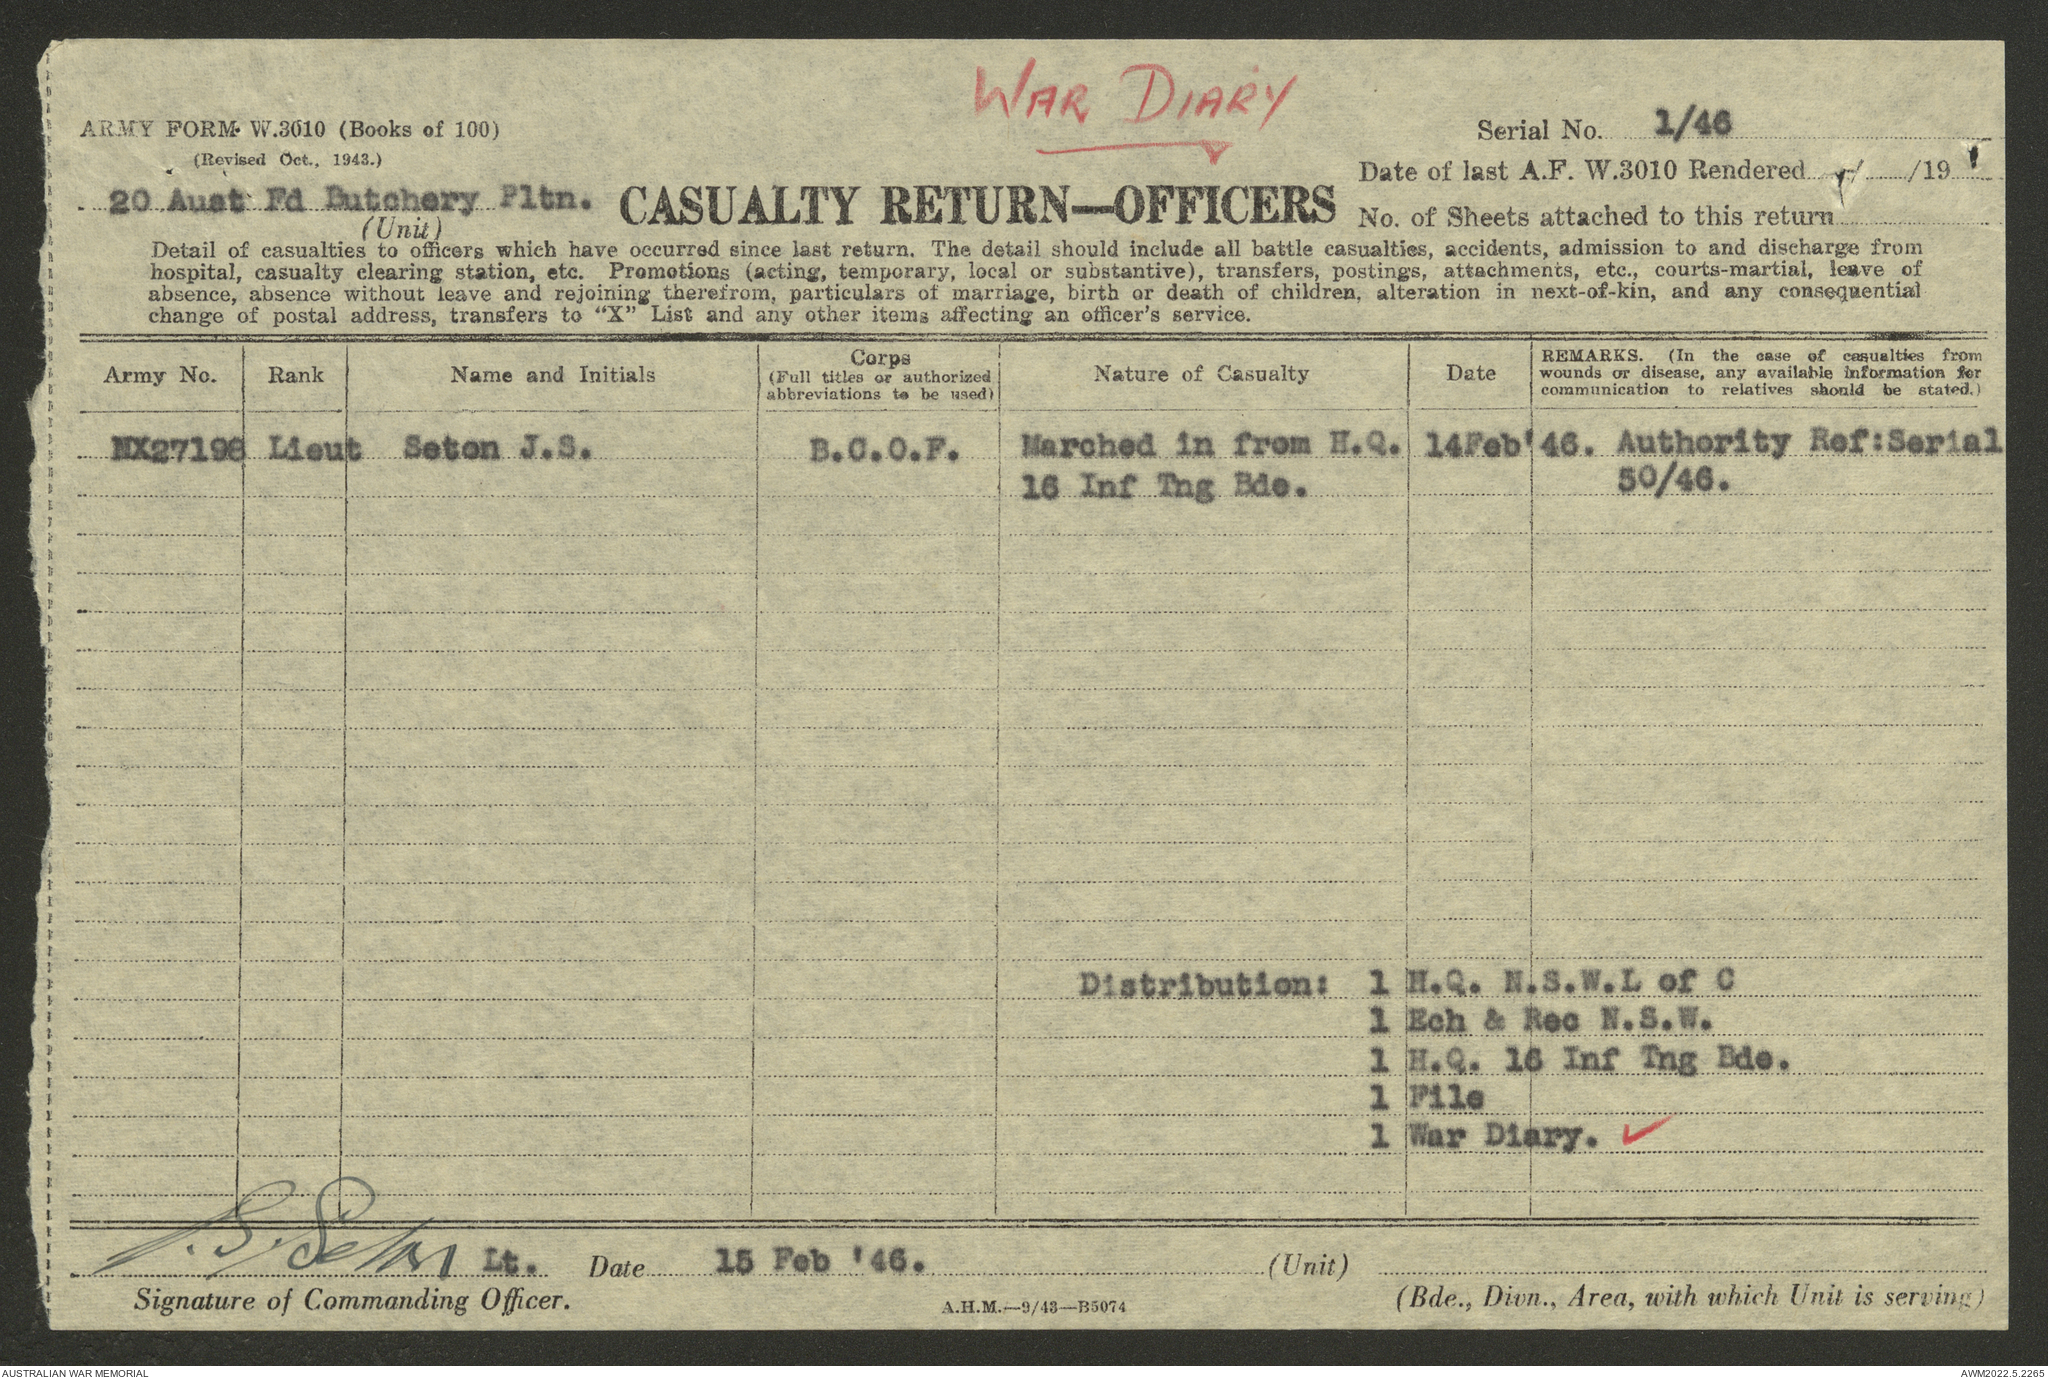 WAR DIARY
ARMY FORM W.3010 (Books of 100)
(Revised Oct., 1943.)
Serial No. 1/46
Date of last A.F. W.3010 Rendered / /19
20 Aust Fd Butchery Pltn.
(Unit)
CASUALTY RETURN—OFFICERS
No. of Sheets attached to this return
Detail of casualties to officers which have occurred since last return. The detail should include all battle casualties, accidents, admission to and discharge from
hospital, casualty clearing station, etc. Promotions (acting, temporary, local or substantive), transfers, postings, attachments, etc., courts-martial, leave of
absence, absence without leave and rejoining therefrom, particulars of marriage, birth or death of children, alteration in next-of-kin, and any consequential
change of postal address, transfers to "X" List and any other items affecting an officer's service.
Army No.
Rank
Name and Initials
Corps
(Full titles or authorized
abbreviations to be used)
Nature of Casualty
Date
REMARKS. (In the case of casualties from
wounds or disease, any available information for
communication to relatives should be stated.)
NX27198 Lieut Seton J.S. B.C.O.F. Marched in from H.Q. 14Feb'46. Authority Ref:Serial
16 Inf Tng Bde. 50/46.
Distribution: 1 H.Q. N.S.W.L of C
1 Ech & Rec N.S.W.
1 H.Q. 16 Inf Tng Bde.
1 File
1 War Diary. ✓
J.S. Seton Lt. Date 15 Feb '46. (Unit)
Signature of Commanding Officer.
A.H.M.—9/43—B5074
(Bde., Divn., Area, with which Unit is serving)
AUSTRALIAN WAR MEMORIAL
AWM2022.5.2265